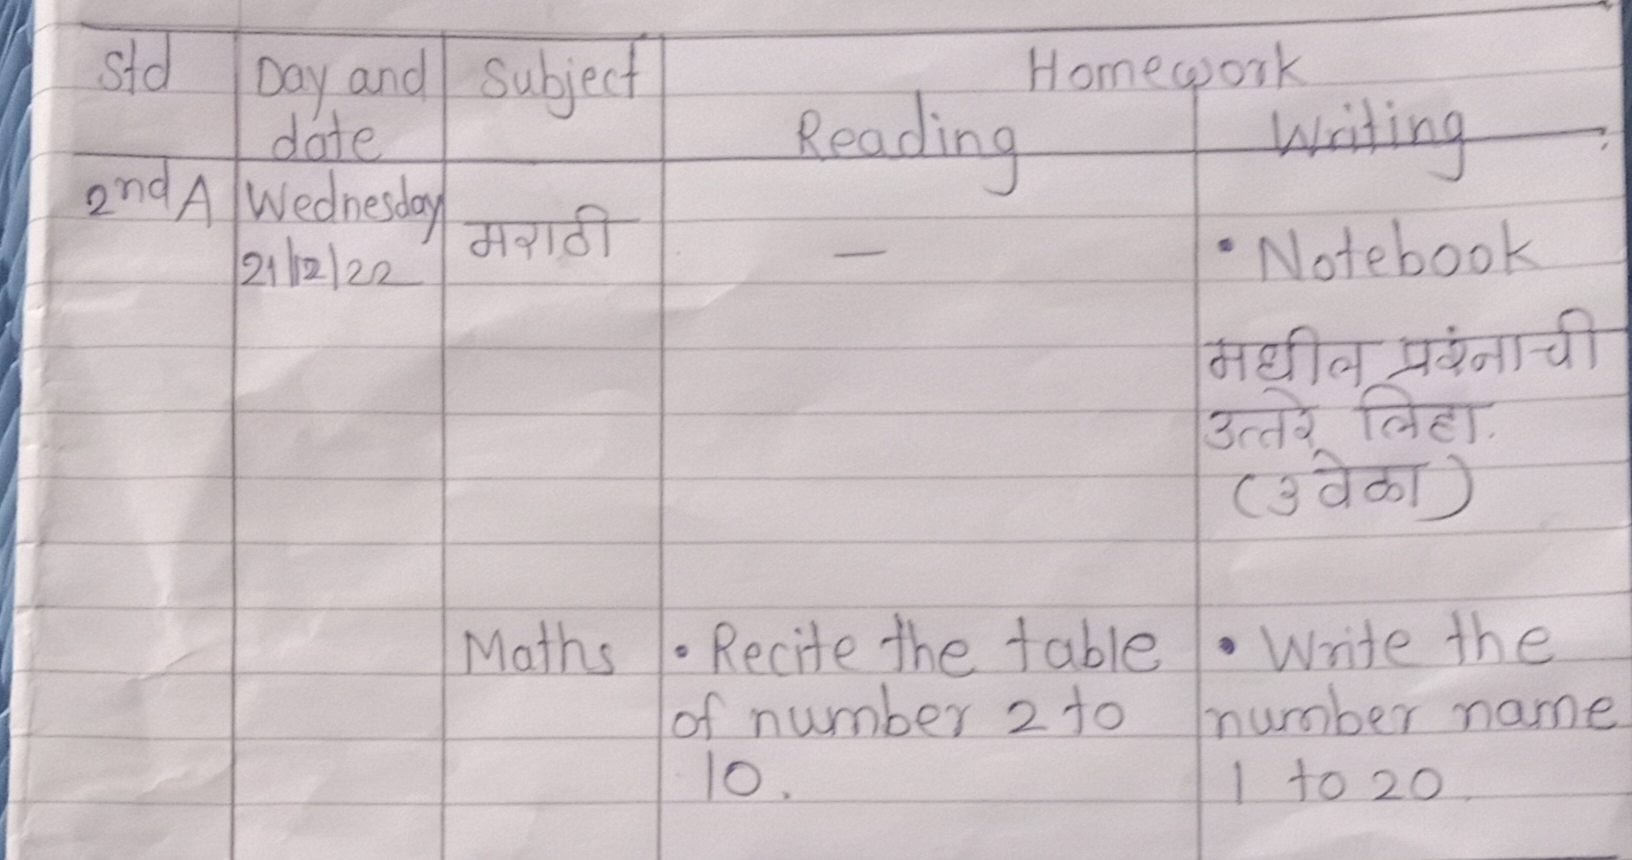 Std Day and Subject Homework
date Reading Writing
2nd A Wednesday
मराठी — • Notebook
21/12/22
मधील प्रश्नाची
उत्तरे लिहा.
(3 वेळा)
Maths • Recite the table • Write the
of number 2 to number name
10. 1 to 20